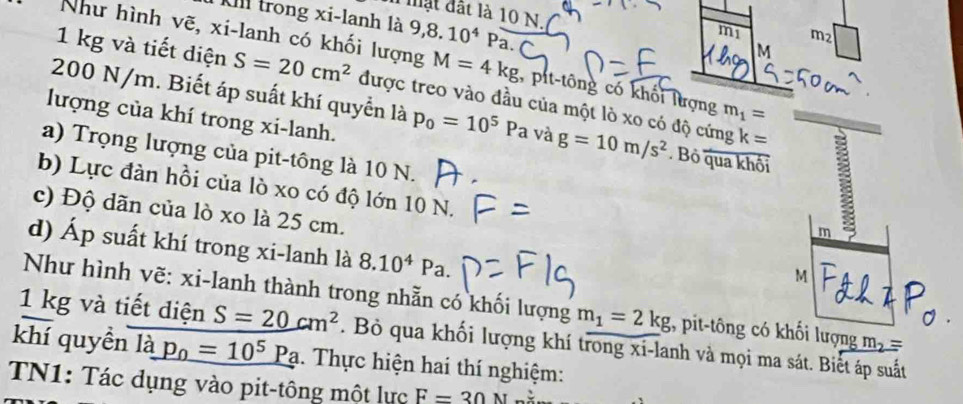 mặt đất là 10 N.
khí trong xi-lanh là 9,8.10⁴ Pa.
Như hình vẽ, xi-lanh có khối lượng M = 4 kg, pit-tông có khối lượng m₁ =
1 kg và tiết diện S = 20 cm² được treo vào đầu của một lò xo có độ cứng k =
200 N/m. Biết áp suất khí quyển là p₀ = 10⁵ Pa và g = 10 m/s². Bỏ qua khối
lượng của khí trong xi-lanh.
a) Trọng lượng của pit-tông là 10 N. A.
b) Lực đàn hồi của lò xo có độ lớn 10 N. F =
c) Độ dãn của lò xo là 25 cm.
d) Áp suất khí trong xi-lanh là 8.10⁴ Pa.
Như hình vẽ: xi-lanh thành trong nhẵn có khối lượng m₁ = 2 kg, pit-tông có khối lượng m₂ =
1 kg và tiết diện S = 20 cm². Bỏ qua khối lượng khí trong xi-lanh và mọi ma sát. Biết áp suất
khí quyển là p₀ = 10⁵ Pa. Thực hiện hai thí nghiệm:
TN1: Tác dụng vào pit-tông một lực F = 30 N
m₁
m₂
M
m
M